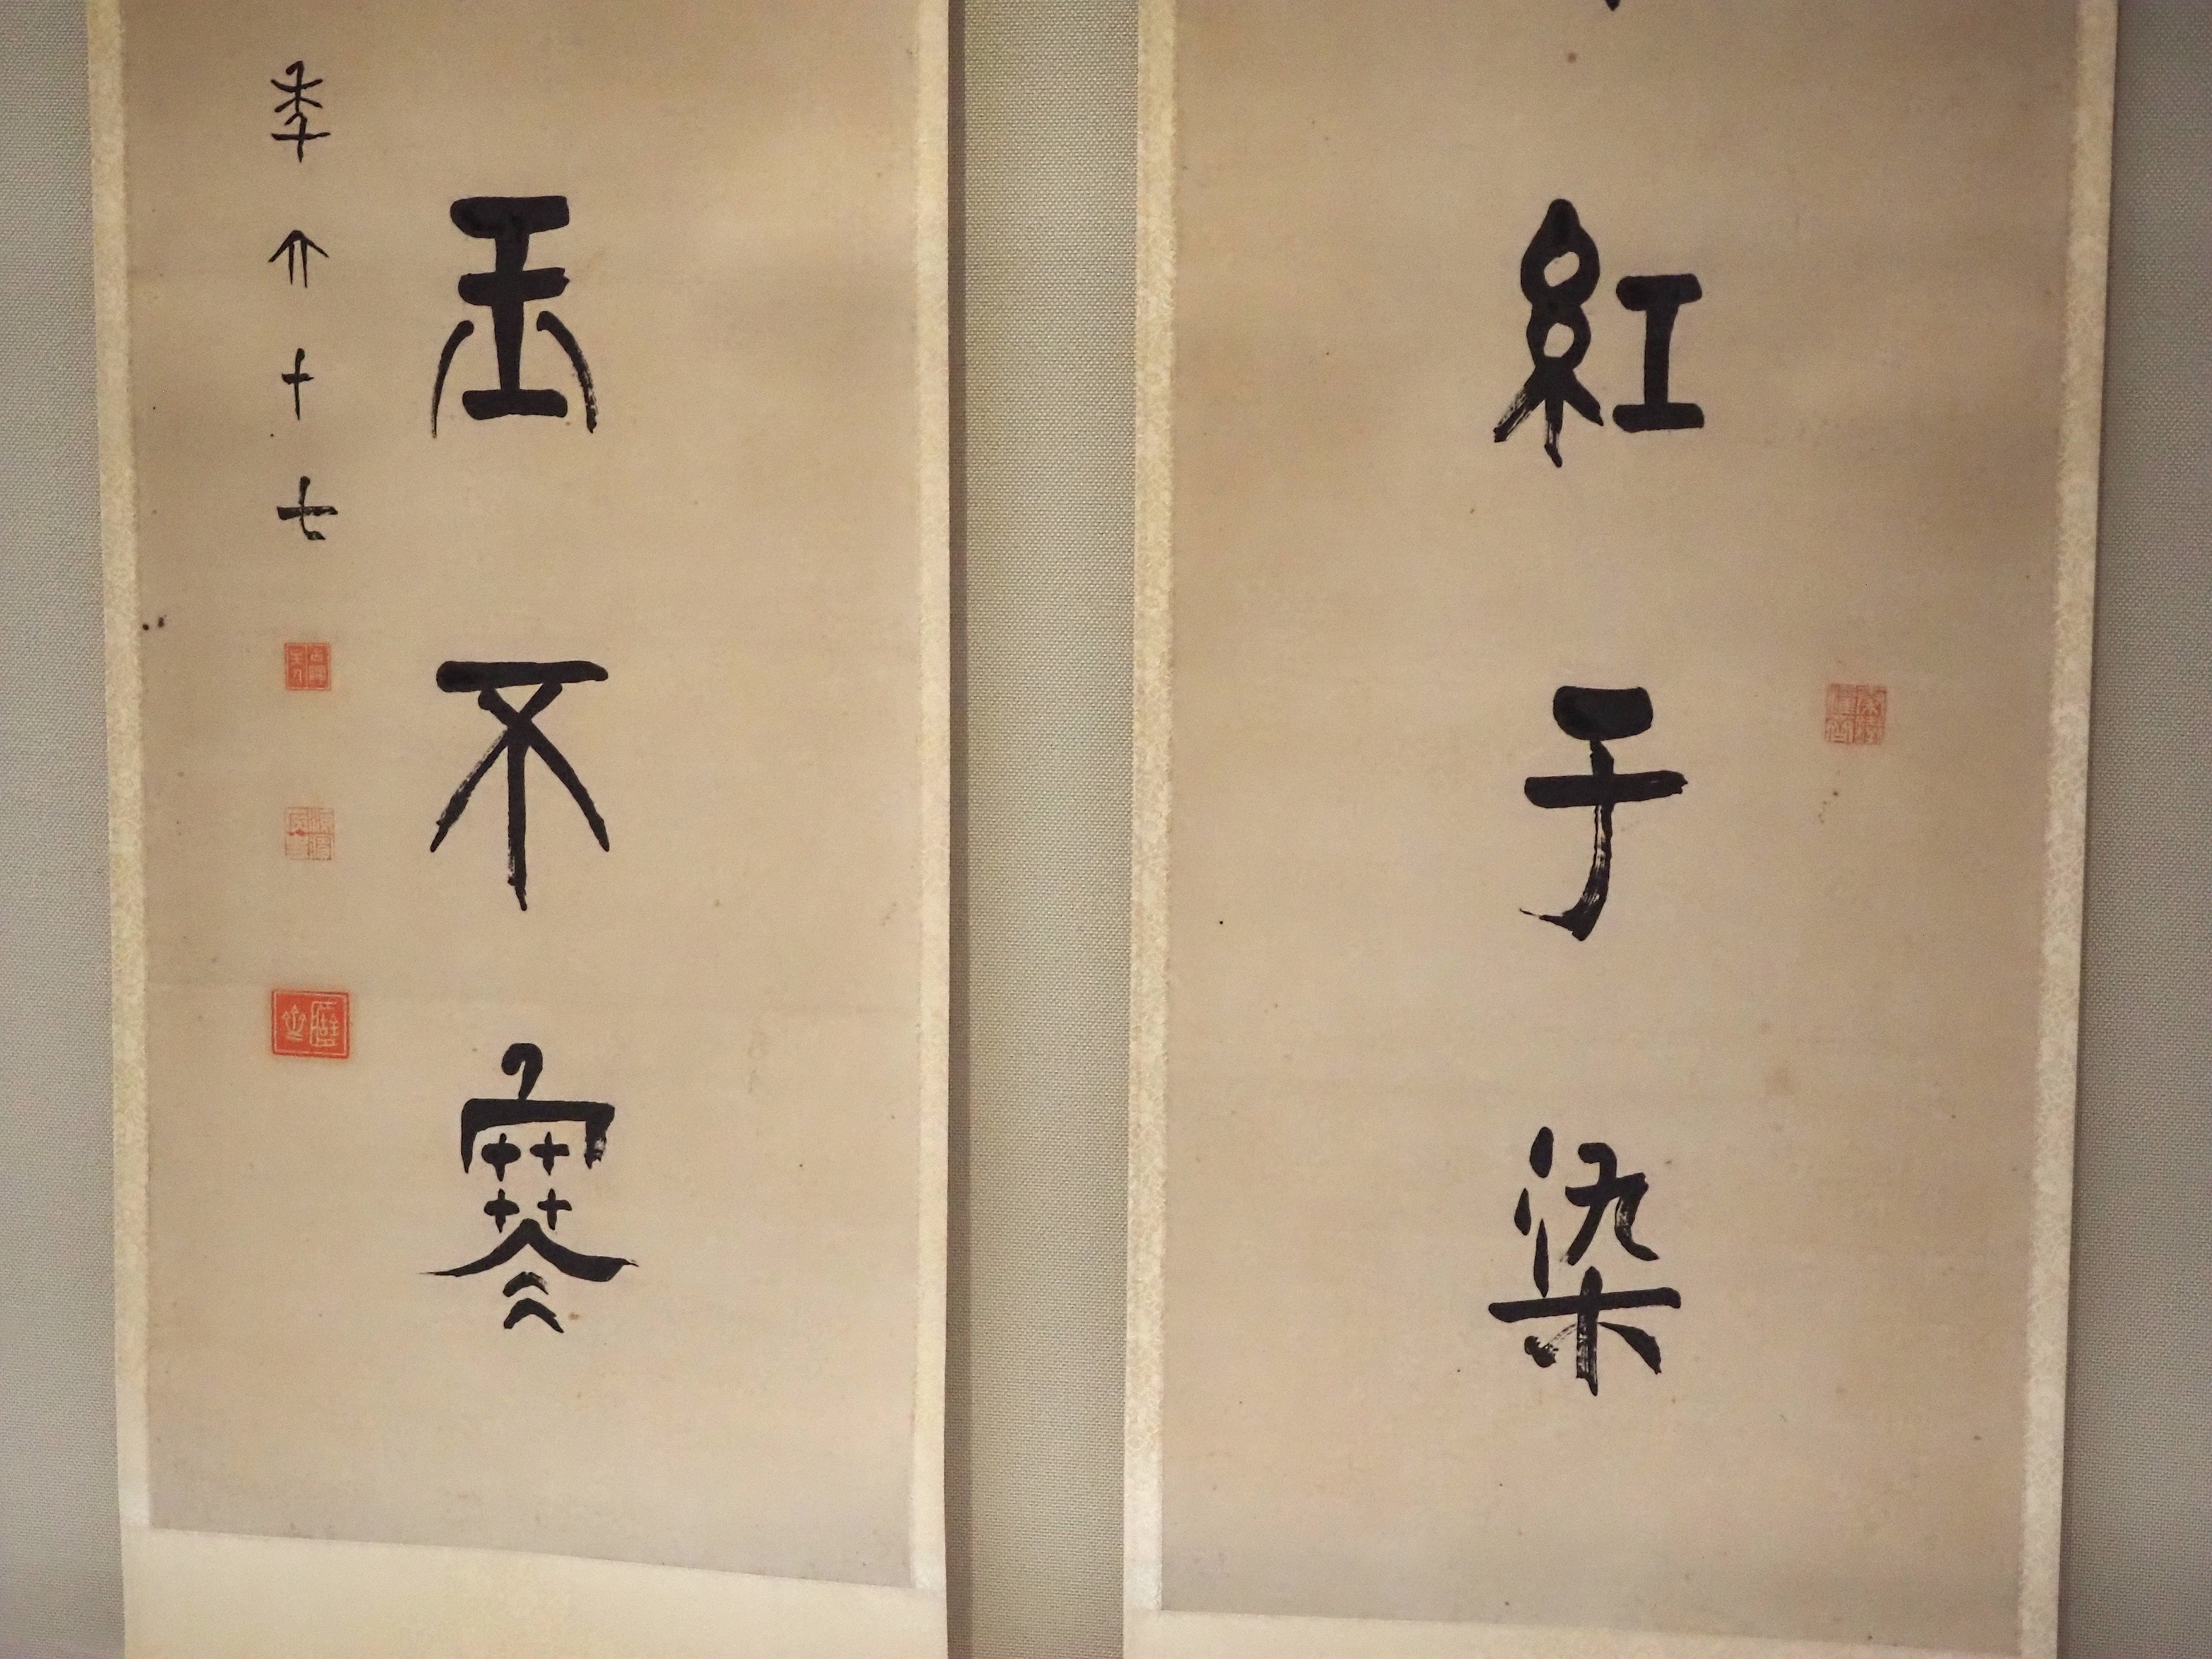 紅于染
玉不寒
年六十七